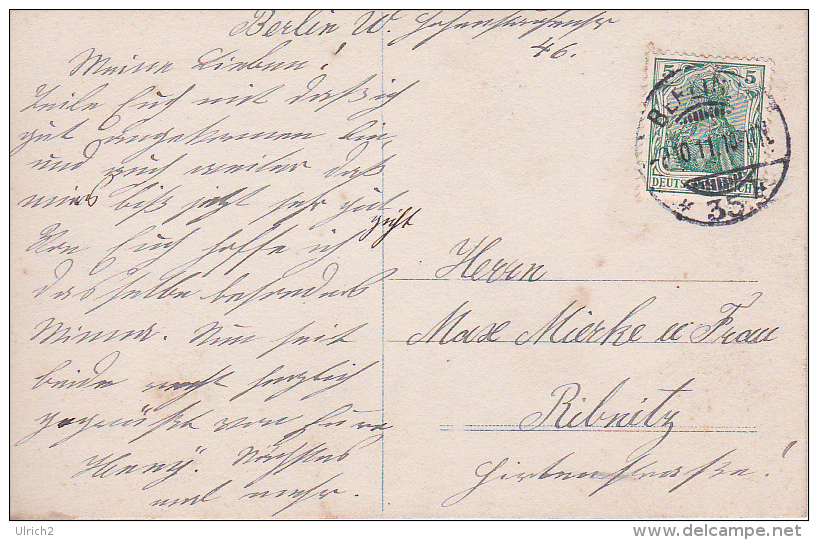 Berlin W. Hohenstaufenstr
46.
Meine Lieben!
Teile Euch mit daß ich
gut angekommen bin
und auch weiter daß
mirs biß jetzt ser gut
geht
Von Euch hoffe ich
dasselbe besonders
Minna. Nun seit
beide recht herzlich
gegrüßt von Eure
Heny. Nächstes
mal mehr.
5 5
BERLIN
10.11.10
DEUTSCHES REICH
* 35 *
Herrn
Max Mierke u Frau
Ribnitz
Hirtenstrasse!
Ulrich2
delcampe.net